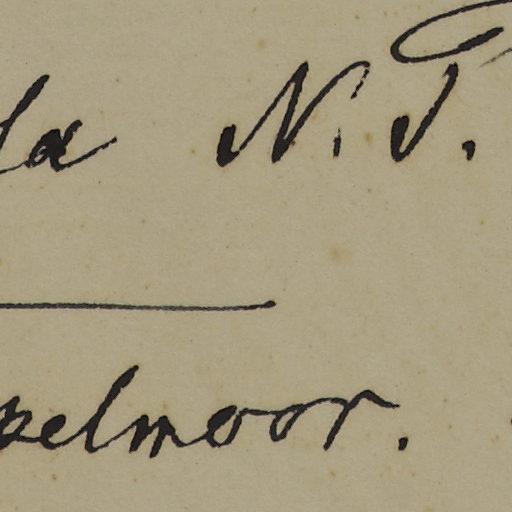 la N. J.
pelmoor.